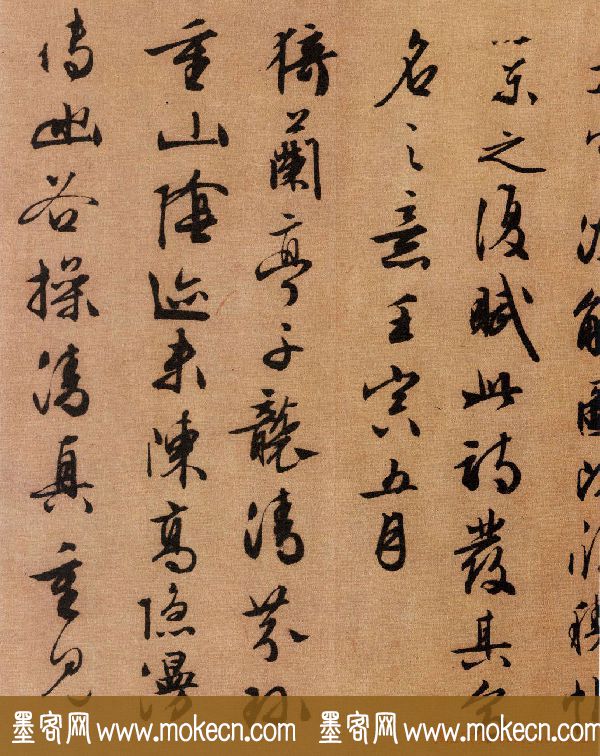 之復賦此詩發其命
名之意壬寅五月
猗蘭亭子襲清芬珍
重山陰迹未陳高隱漫
傳幽谷操清真重見
墨客网 www.mokecn.com 墨客网 www.mokecn.com